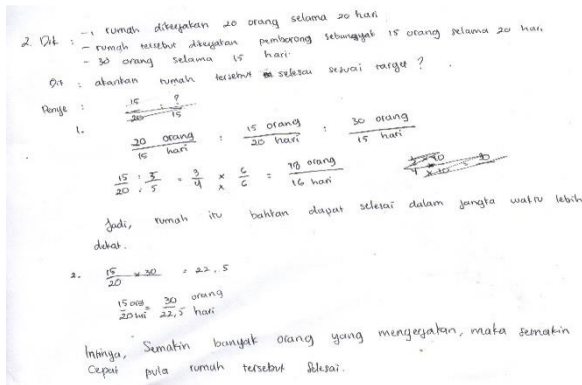 2. Dik : - 1 rumah dikerjakan 20 orang selama 20 hari.
- rumah tersebut dikerjakan pemborong sebanyak 15 orang selama 20 hari.
- 30 orang selama 15 hari.
Dit : akankah rumah tersebut selesai sesuai target ?
Penye :
1. 20 orang / 15 hari : 15 orang / 20 hari : 30 orang / 15 hari
15/20 : 5/5 = 3/4 x 6/6 = 18 orang / 16 hari
Jadi, rumah itu bahkan dapat selesai dalam jangka waktu lebih
dekat.
2. 15/20 x 30 = 22,5
15 org / 20 hari = 30 orang / 22,5 hari
Intinya, Semakin banyak orang yang mengerjakan, maka semakin
Cepat pula rumah tersebut Selesai.